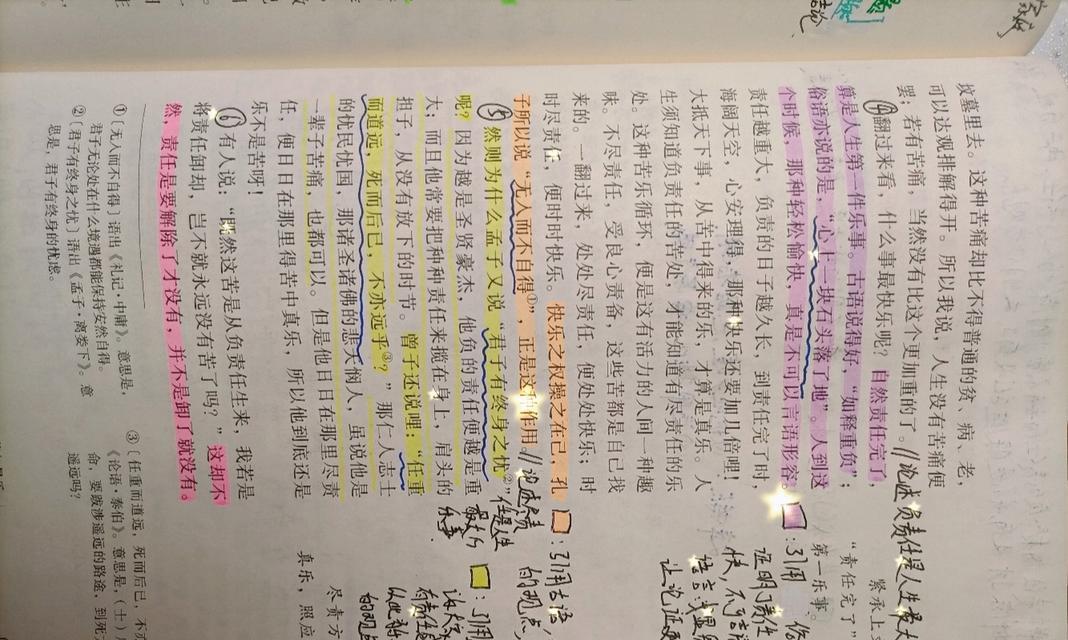 坟墓里去。这种苦痛却比不得普通的贫、病、老,
可以达观排解得开。所以我说,人生没有苦痛便
罢;若有苦痛,当然没有比这个更加重的了。
④翻过来看,什么事最快乐呢?自然责任完了,
算是人生第一件乐事。古语说得好,“如释重负”;
俗语亦说的是,“心上一块石头落了地”。人到这
个时候,那种轻松愉快,真是不可以言语形容。
责任越重大,负责的日子越久长,到责任完了时,
海阔天空,心安理得,那种快乐还要加几倍哩!
大抵天下事,从苦中得来的乐,才算是真乐。人
生须知道负责任的苦处,才能知道有尽责任的乐
处。这种苦乐循环,便是这有活力的人间一种趣
味。不尽责任,受良心责备,这些苦都是自己找
来的。一翻过来,处处尽责任,便处处快乐;时
时尽责任,便时时快乐。快乐之权操之在己,孔
子所以说“无入而不自得①”,正是这种作用。
⑤然则为什么孟子又说“君子有终身之忧②”
呢?因为越是圣贤豪杰,他负的责任便越是重
大;而且他常要把种种责任来揽在身上,肩头的
担子,从没有放下的时节。曾子还说哩:“任重
而道远,死而后已,不亦远乎③?”那仁人志士
的忧民忧国,那诸圣诸佛的悲天悯人,虽说他是
一辈子苦痛,也都可以。但是他日日在那里尽责
任,便日日在那里得苦中真乐,所以他到底还是
乐不是苦呀!
⑥有人说:“既然这苦是从负责任生来,我若是
将责任卸却,岂不就永远没有苦了吗?”这却不
然,责任是要解除了才没有,并不是卸了就没有。
①〔无入而不自得〕语出《礼记·中庸》。意思是,
君子无论处在什么境遇都能保持安然自得。
②〔君子有终身之忧〕语出《孟子·离娄下》。意
思是,君子有终身的忧虑。
③〔任重而道远,死而后已,不亦
《论语·泰伯》。意思是,(士)
命,要跋涉遥远的路途,到死
遥远吗?
紧承上
“责任完了”
第一乐事。
尽责方
真乐,照应
论述负责任是人生最大
:引用
证明了责任
快,
让论证更
:引用古语,
的观点,
论述尽责
任是人生
最大的
乐事.
:引用